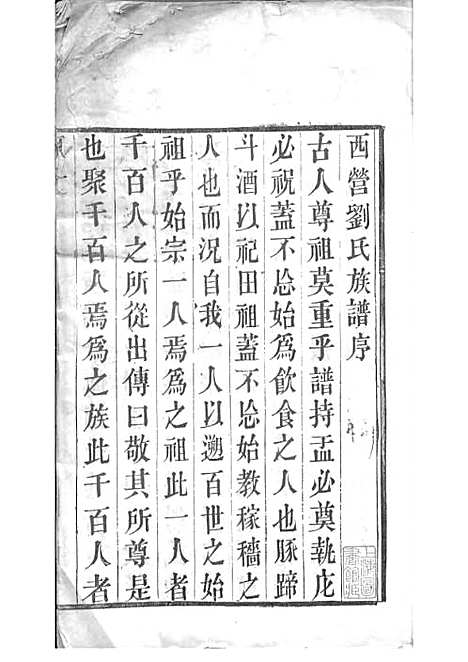 西營劉氏族譜序
古人尊祖莫重乎譜持盂必奠執庀
必祝蓋不忩始爲飮食之人也豚蹄
斗酒以祀田祖蓋不忩始教稼穡之
人也而況自我一人以遡百世之始
祖乎始宗一人焉爲之祖此一人者
千百人之所從出傳曰敬其所尊是
也聚千百人焉爲之族此千百人者